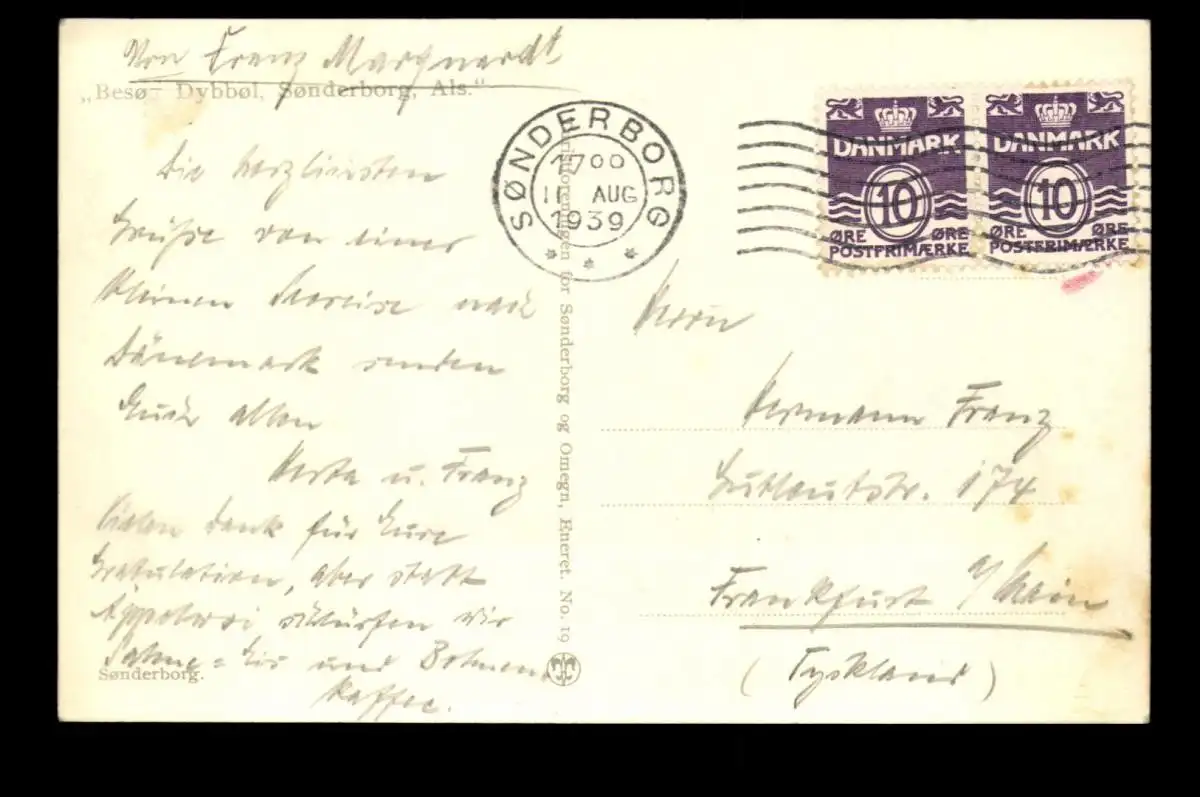 Von Franz Marquardt
„Besøg Dybbøl, Sønderborg, Als.“
Die herzlichsten
Grüße von einer
kleinen Seereise nach
Dänemark senden
Euch allen
Herta u. Franz
Vielen Dank für Eure
Gratulation, aber statt
Äppelwoi schlürfen wir
Sahne=Eis und Bohnen
Kaffee.
Sønderborg.
Turistforeningen for Sønderborg og Omegn, Eneret. No. 19
SØNDERBORG
1700
11 AUG
1939
DANMARK
10
ØRE ØRE
POSTFRIMÆRKE
DANMARK
10
ØRE ØRE
POSTFRIMÆRKE
Herrn
Hermann Franz
174
Frankfurt a/Main
(Tyskland)